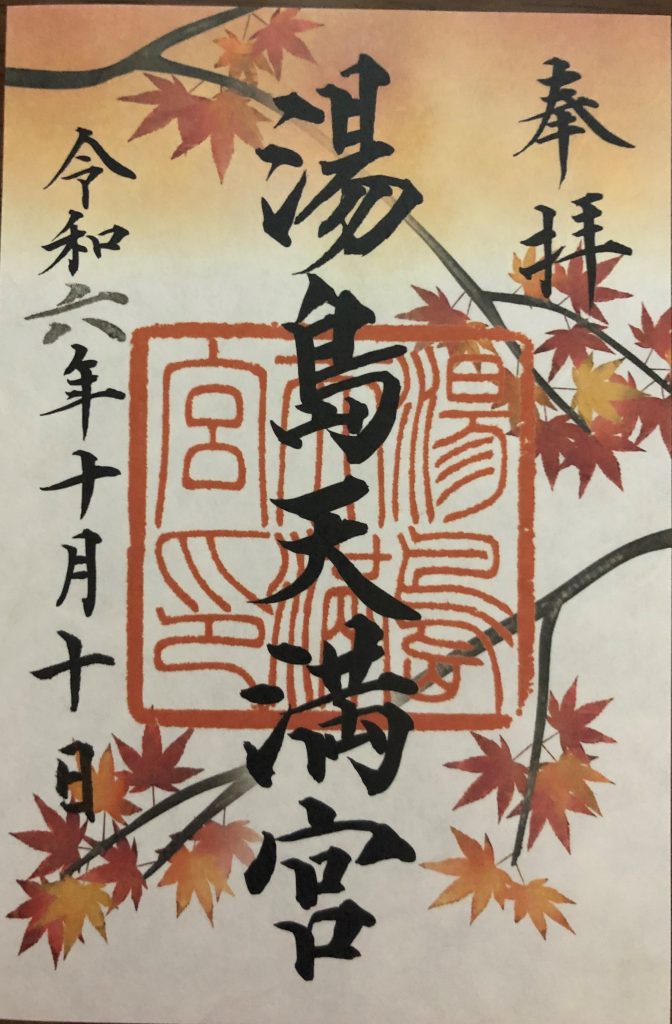 奉拝
湯島天満宮
湯島天満宮印
令和六年十月十日